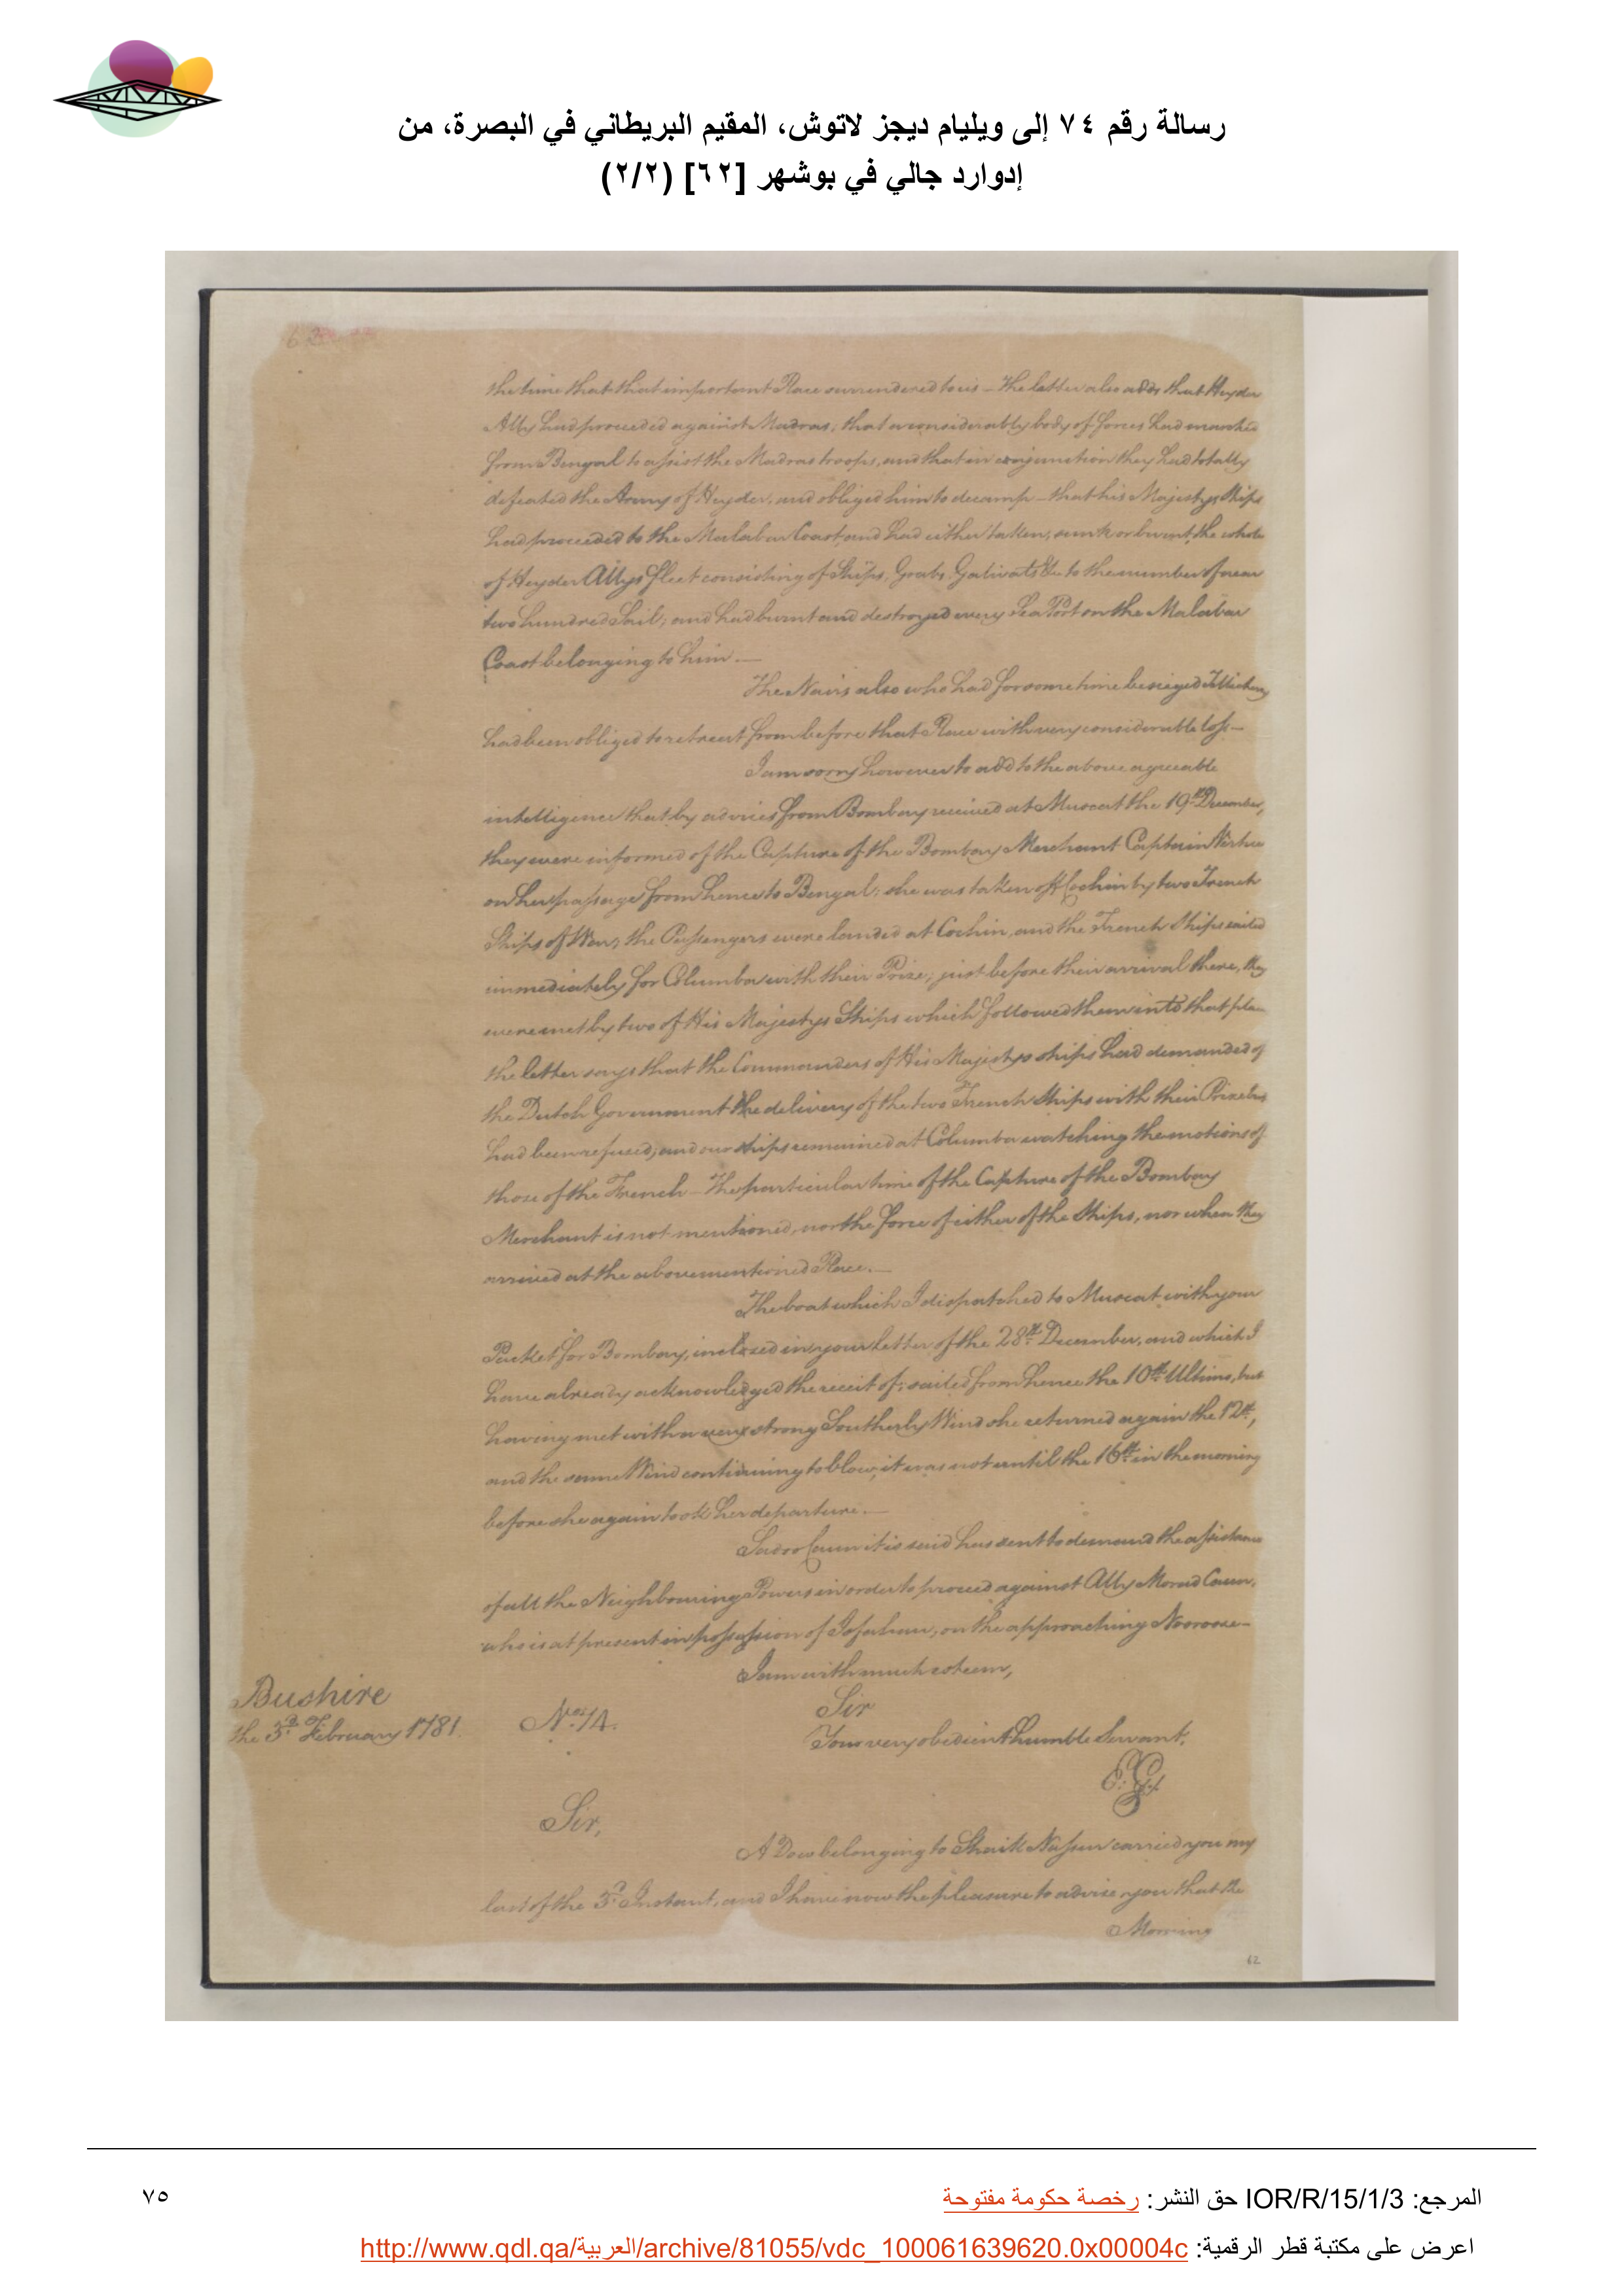 رسالة رقم ٧٤ إلى ويليام ديجز لاتوش، المقيم البريطاني في البصرة، من
إدوارد جالي في بوشهر [٦٢] (٢/٢)
the time that that important Place surrendered to us – The letter also adds that Heyder
Ally had proceeded against Madras; that a considerably body of forces had marched
from Bengal to assist the Madras troops, and that in conjunction they had totally
defeated the Army of Heyder, and obliged him to decamp – that his Majestys Ships
had proceeded to the Malabar Coast and had either taken, sunk or burnt, the whole
of Heyder Allys fleet consisting of Ships, Grabs, Galivats &c. to the number of near
two hundred Sail; and had burnt and destroyed every Sea Port on the Malabar
Coast belonging to him. —
The Nairs also who had for some time besieged Tellichery
had been obliged to retreat from before that Place with very considerable loss —
I am sorry however to add to the above agreeable
intelligence that by advices from Bombay received at Muscat the 19th December,
they were informed of the Capture of the Bombay Merchant Captain Virtue
on her passage from hence to Bengal; she was taken off Cochin by two French
Ships of War, the Passengers were landed at Cochin, and the French Ships sailed
immediately for Columbo with their Prize; just before their arrival there, they
were met by two of His Majestys Ships which followed them into that place
the letter says that the Commanders of His Majestys ships had demanded of
the Dutch Government the delivery of the two French Ships with their Prize but
had been refused, and our ships remained at Columbo watching the motions of
those of the French – The particular time of the Capture of the Bombay
Merchant is not mentioned, nor the force of either of the Ships, nor when they
arrived at the abovementioned Place. —
The boat which I dispatched to Muscat with your
Packet for Bombay, inclosed in your letter of the 28th December, and which I
have already acknowledged the receit of; sailed from hence the 10th Ultimo, but
having met with a very strong Southerly Wind she returned again the 12th,
and the same Wind continuing to blow, it was not until the 16th in the morning
before she again took her departure. —
Sadoo Caun it is said has sent to demand the assistance
of all the Neighbouring Powers in order to proceed against Ally Morad Caun,
who is at present in possession of Isfahan, on the approaching Norooze —
I am with much esteem,
Sir
Your very obedient humble Servant,
E: G
Bushire
the 3d February 1781.
No. 74.
Sir,
A Dow belonging to Shaik Nassur carried you my
last of the 3d Instant, and I have now the pleasure to advise you that the
Morning
62
المرجع: IOR/R/15/1/3 حق النشر: رخصة حكومة مفتوحة
٧٥
اعرض على مكتبة قطر الرقمية: http://www.qdl.qa/العربية/archive/81055/vdc_100061639620.0x00004c